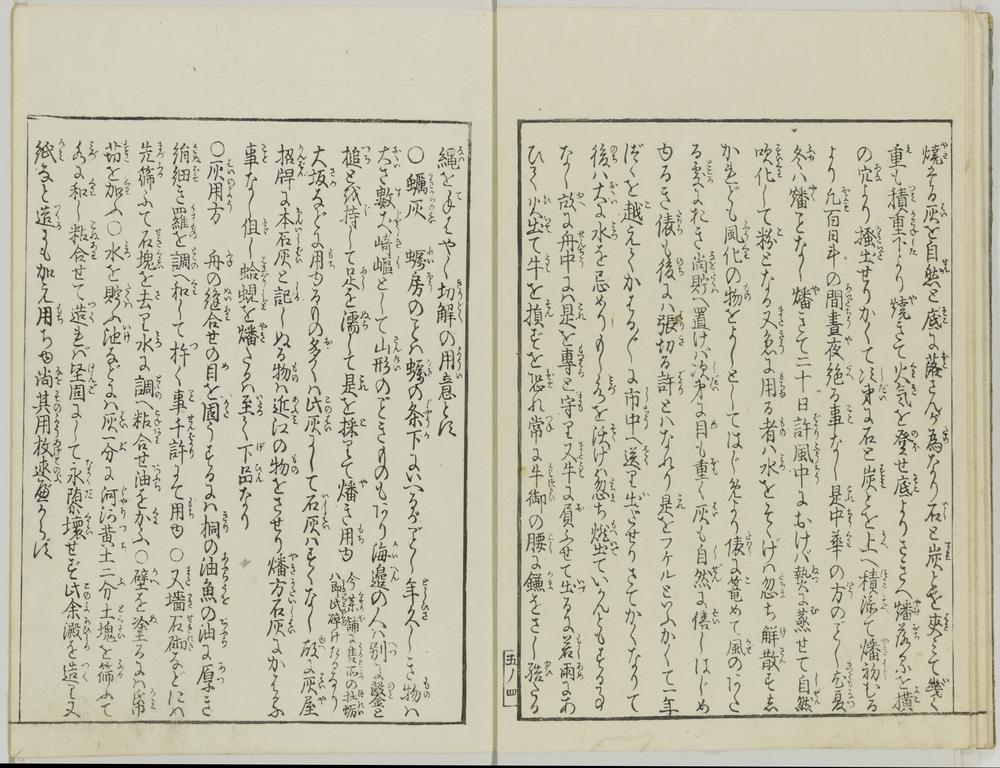 焼たる灰を自然と底に落さんが為なり石と炭とを夾みて幾く
重も積重下より焼きて火気を登せ底よりさきへ燔落るを横
の穴より掻出せりかくて次第に石と炭とを上へ積添て燔初むる
より凡百日斗の間昼夜絶る事なし是中華の方のごとし尤夏
冬ハ燔ことなし燔さて二十日許風中におけば熱に蒸せて自然
吹化して粉となる又急に用る者ハ水をそゝげハ忽ち解散すし
かれども風化の物をよしとしてはじめより俵に篭めて風のあた
る処におき尚貯へ置けバ次第に目も重く灰も自然に倍しはじめ
ゆるき俵も後にハ張切る許とハなれり是をフケルといふかくて一年
を越えて市中へ送り出せりさてかくなりて
後ハ大に水を忌めりもし水を沃げハ忽ち燃出ていかんともする事
なし故に舟中にハ是を専と守り又牛に負ふせて出るにも若雨にあ
ひてハ火出て牛を損ずを恐れ常に牛御の腰に鎌をさし
五ノ四
縄をはやく切解の用意とす
○蠣灰 蠣房のことハ蠣の条下にいへるがごとし年久しき物ハ
大さ数丈﨑嶇として山形のごときものもあり海邉の人ハ別に鑿と
槌とを持して足を濡して是を採りて燔き用ゆ 今薬舗に售所の牡蛎ハ即此砕けたるなり
大坂などに用ゆるもの多くハ此灰にして石灰ハすくなし故に灰屋
招牌に本石灰と記しぬる物ハ近江の物をさせり燔方石灰にかはる
事なし但し蛤蜆を燔たるハ至て下品なり
○灰用方 舟の縫合せの目を固うするにハ桐の油魚の油に厚き
絹細き羅を調へ和して杵く事千許にて用ゆ ○又墻石砌などにハ
先篩ふて石塊を去り水に調へ粘合せ油をかふ ○壁を塗るにハ帋
苆を加ふ ○水を貯ふ池などにハ灰一分に河沙黄土二分土塊を篩ふて
水に和し粘合せて造れバ堅固にして永隳壊せず此余澱を造り又
紙など造るにも加え用ちゆ尚其用枚述がたし